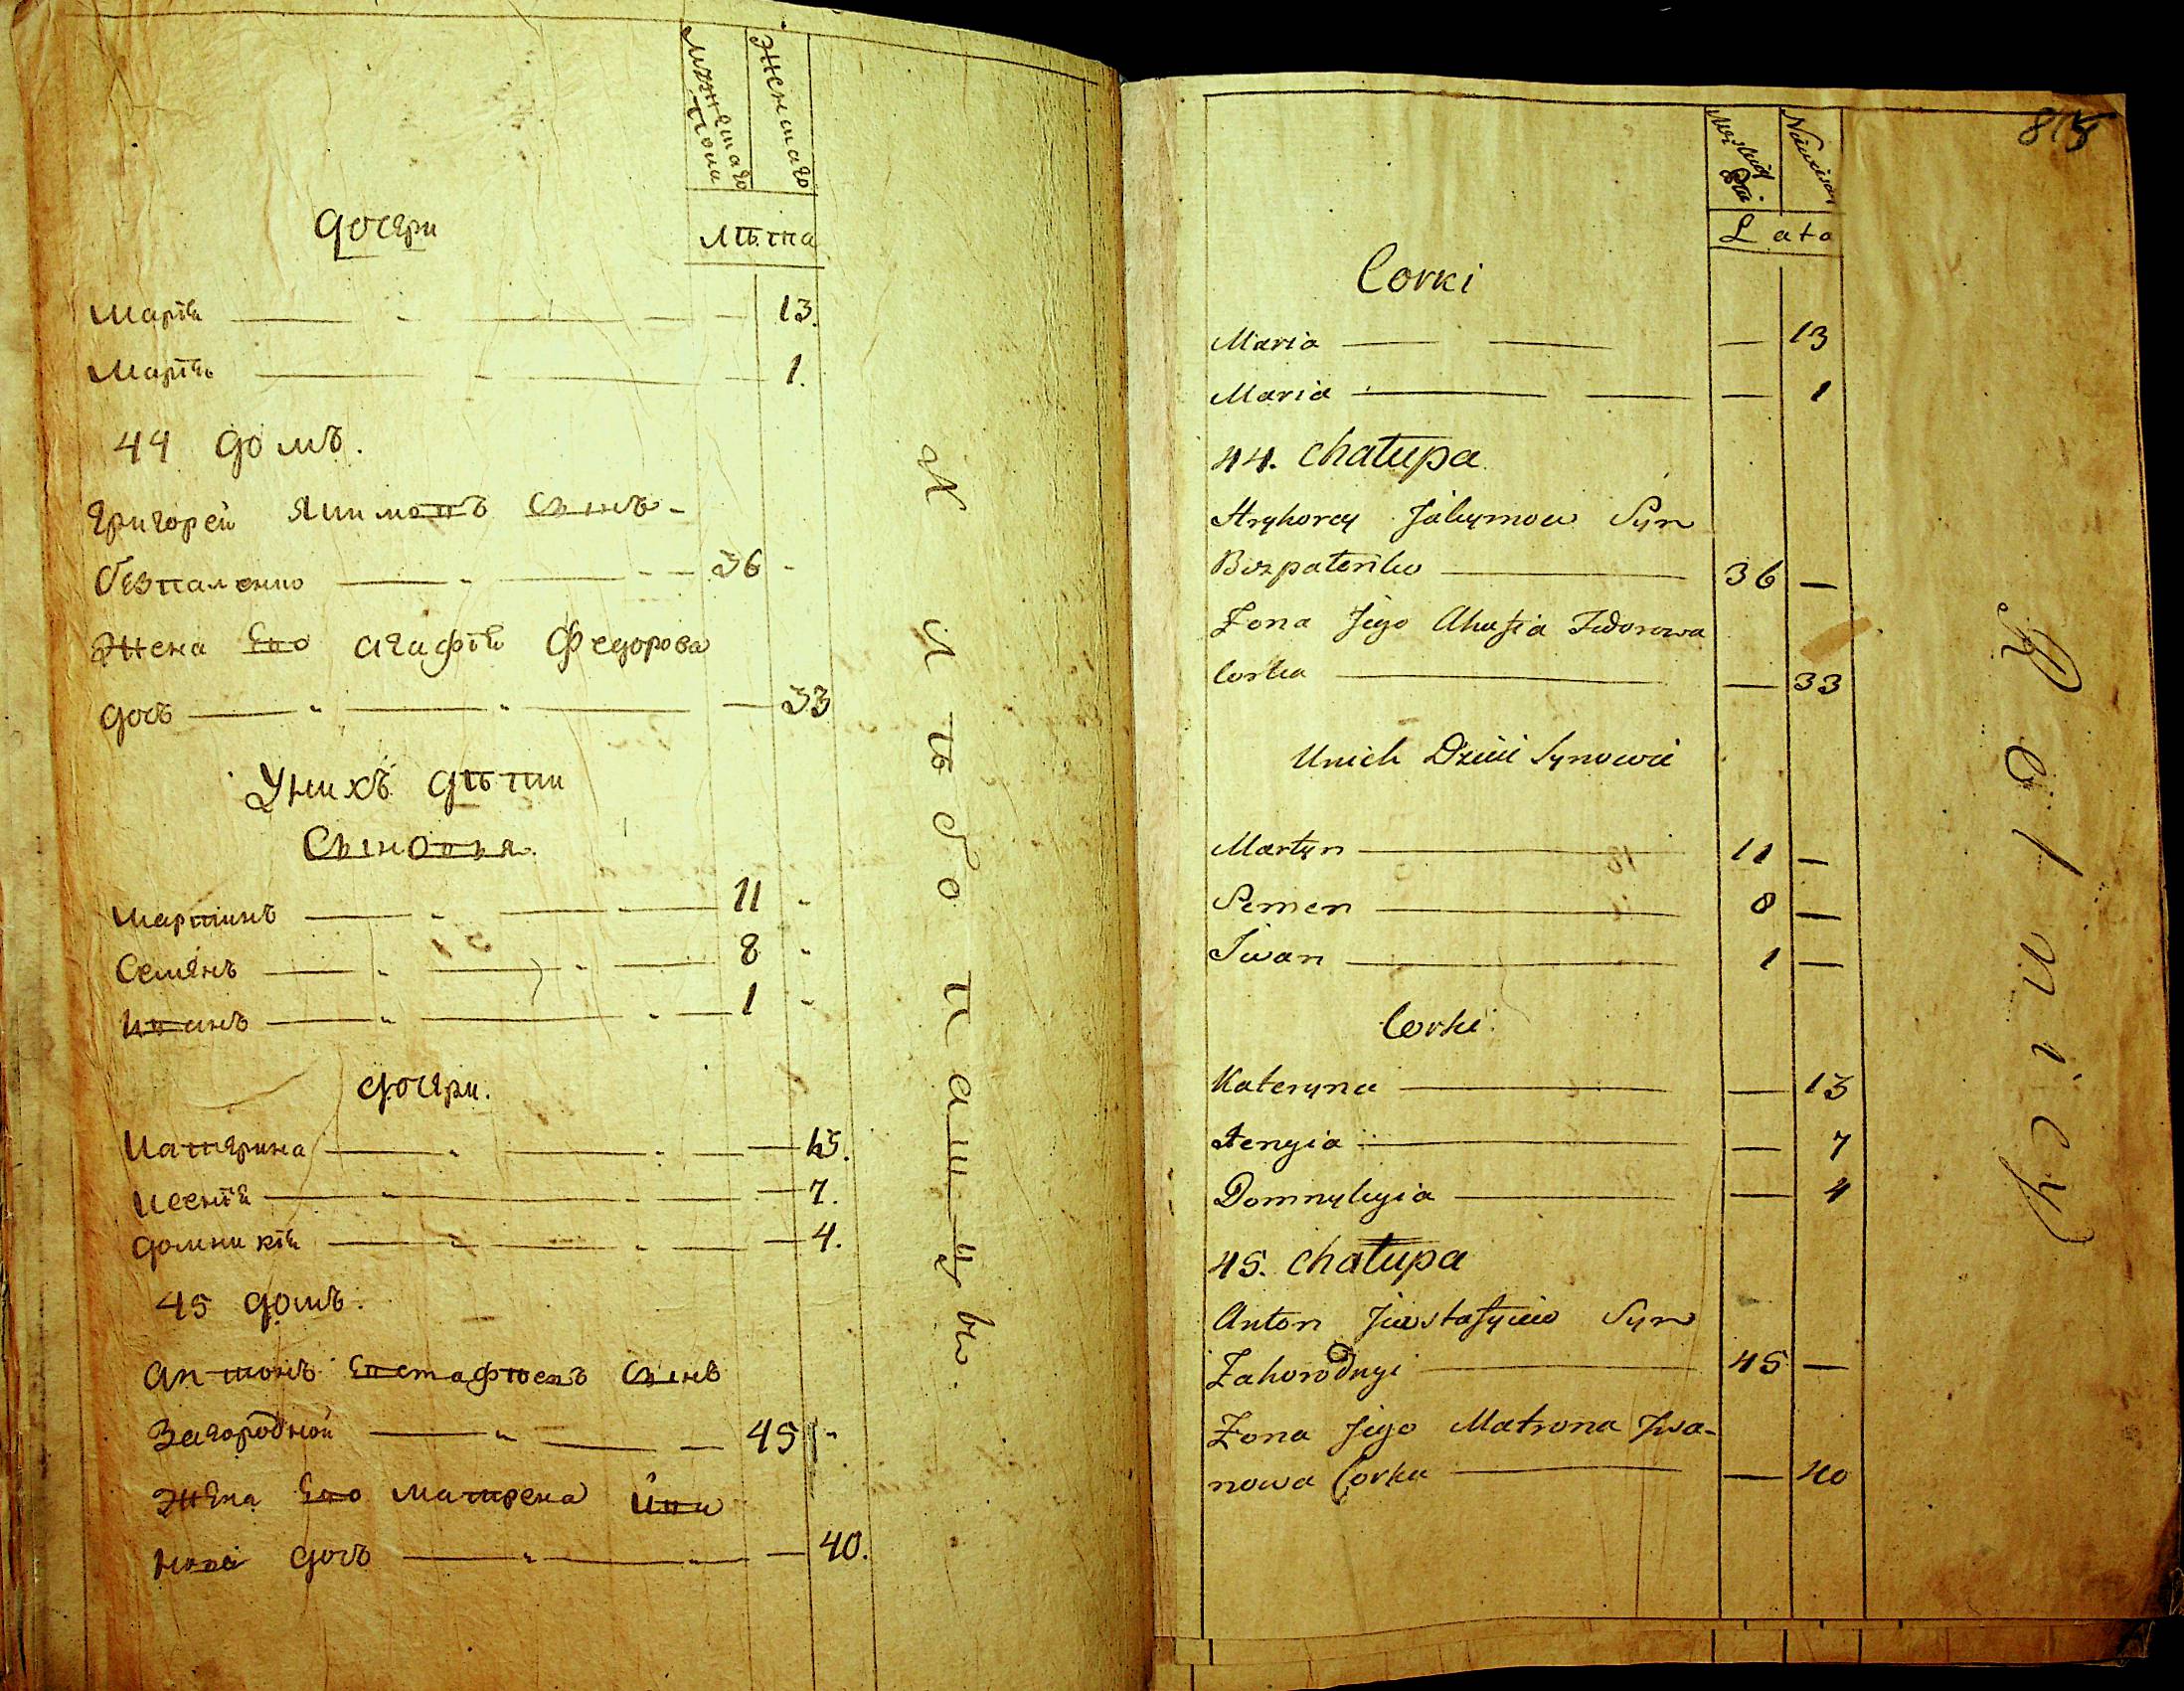 Мужеска
пола
Женскаго
Лѣта
Дочери
Марія 13.
Марія 1.
44 домъ.
Григорей Якимовъ Сынъ
Безпаленко 36
Жена Его Агафія Федорова
дочь 33
У нихъ дѣти
Сыновья.
Мартинъ 11
Семёнъ 8
Иванъ 1
дочери.
Катерина 13.
Ксенія 7.
Домникія 4.
45 домъ.
Антонъ Евстафіевъ Сынъ
Загородной 45
Жена Его Матрена Ива
нова дочь 40.
Хлѣбопашцы.
815
Lata
Corki
Maria — 13
Maria — 1
44. Chałupa
Hryhorey Jakymow Syn
Bezpalenko 36 —
Żona Jego Ahafia Fedorowa
Corka — 33
U nich Dzieci Synowie
Martyn 11 —
Semen 8 —
Iwan 1 —
Corki
Kateryna — 13
Xenyia — 7
Domnykyia — 4
45. Chałupa
Anton Jewstafyiew Syn
Zahorodnyi 45 —
Żona Jego Matrona Iwa-
nowa Corka — 40
Rolnicy